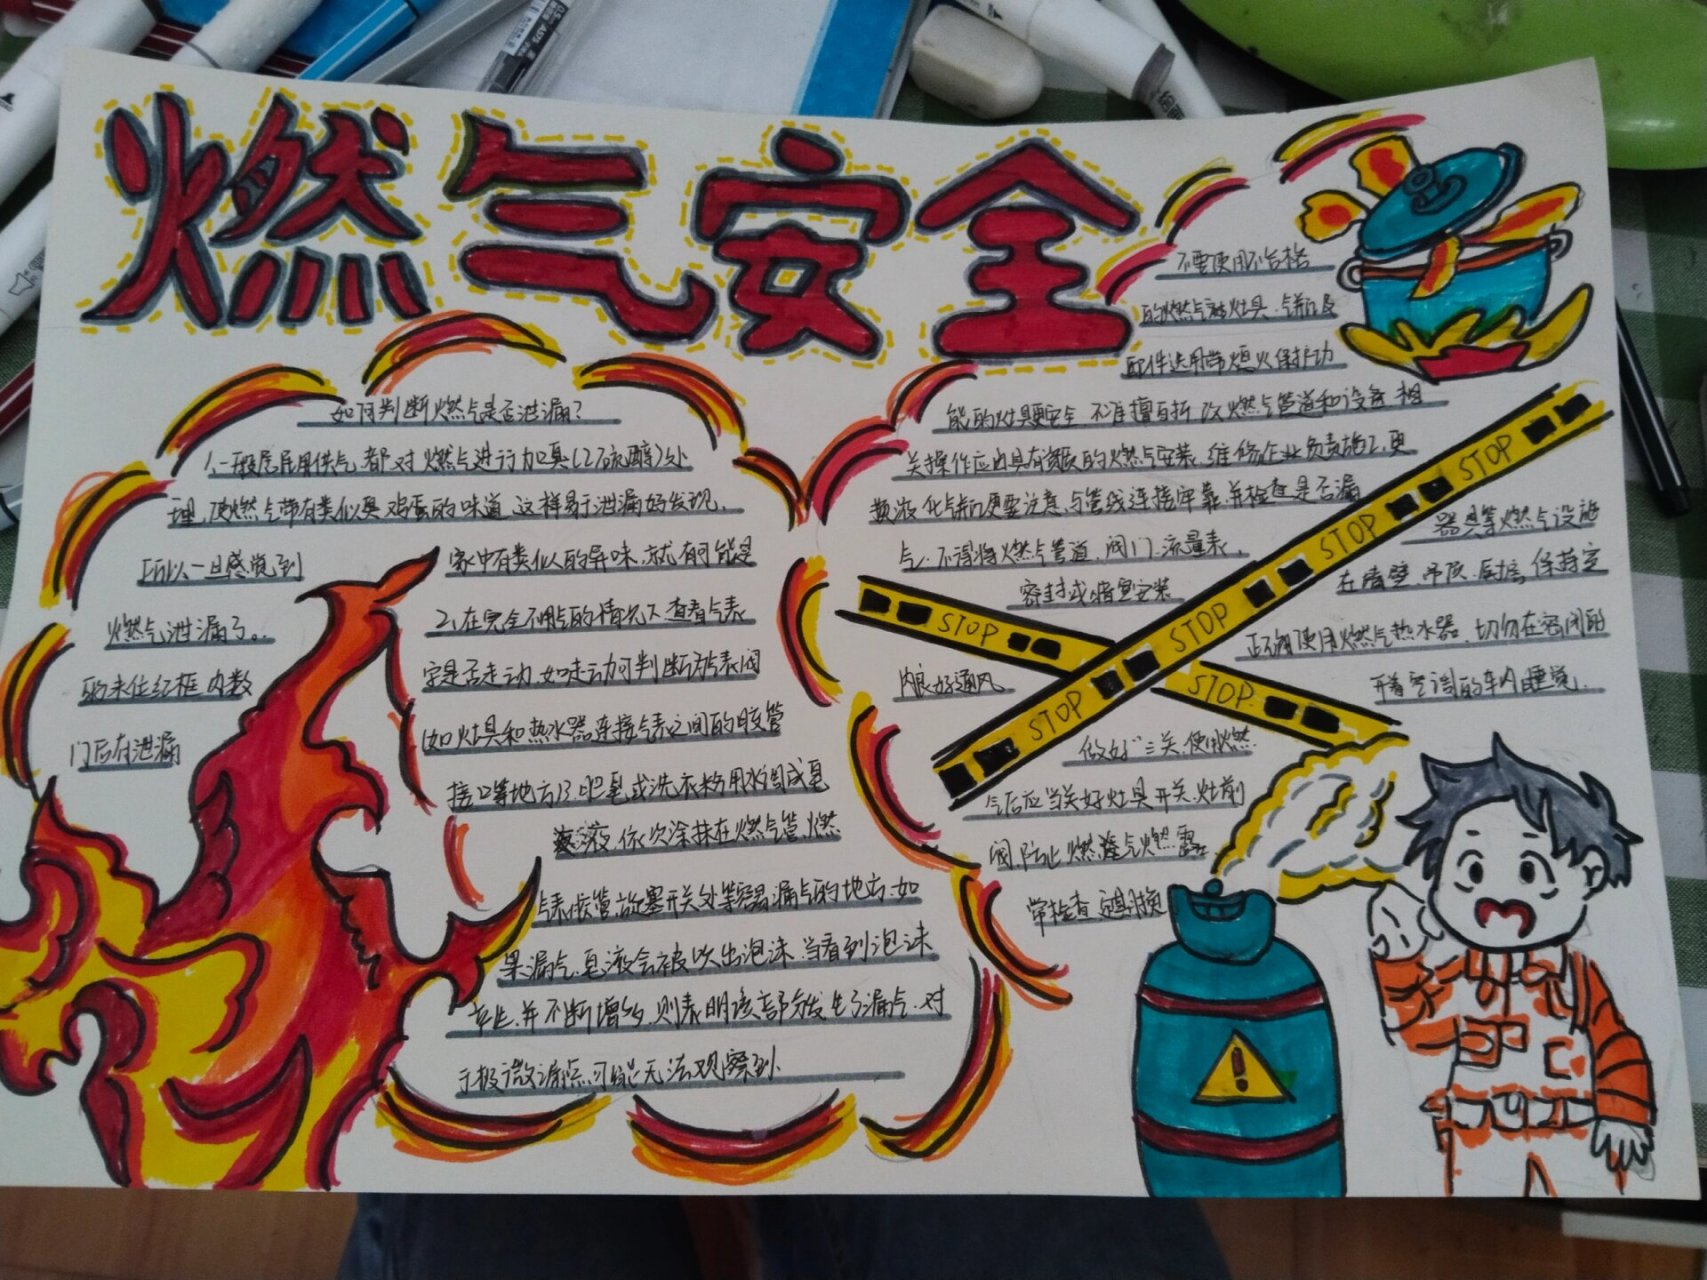 燃气安全
如何判断燃气是否泄漏?
1、一般居民用供气,都对燃气进行加臭(乙硫醇)处
理,使燃气带有类似臭鸡蛋的味道,这样易于泄漏好发现,
所以一旦感觉到
家中有类似的异味,就有可能是
燃气泄漏了。
2、在完全不用气的情况下查看气表
的末位红框内数
字是否走动,如走动可判断为气表阀
门后有泄漏
(如灶具和热水器连接气表之间的胶管
接口等地方)3.肥皂或洗衣粉用水调成皂
液,依次涂抹在燃气管.燃
气表胶管,旋塞开关处等容易漏气的地方,如
果漏气,皂液会被吹出泡沫.当看到泡沫
产生,并不断增多,则表明该部分发生了漏气.对
于极微漏点可能无法观察到.
不要使用不合格
的燃气灶具.气瓶及
配件选用带熄火保护功
能的灶具更安全.不准擅自拆改燃气管道和设备.相
关操作应由具有资质的燃气安装.维修企业负责施工,更
换液化气瓶更要注意,与管线连接牢靠,并检查是否漏
气.不得将燃气管道.阀门.流量表.
器具等燃气设施
密封或暗包安装
在墙壁.吊顶.厨房,保持室
内良好通风
正确使用燃气热水器.切勿在密闭的
开着空调的车内睡觉.
STOP STOP
STOP STOP STOP STOP
做好"三关,使用燃
气后应当关好灶具开关.灶前
阀,防止燃
常检查.定期换